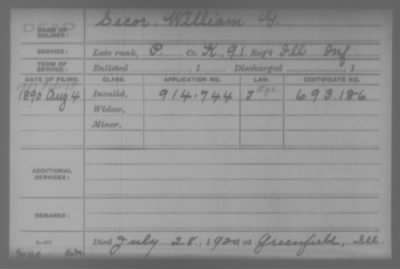 NAME OF SOLDIER: Secor, William G.
SERVICE: Late rank, P. Co. K, 91 Reg't Ill Inf
TERM OF SERVICE: Enlisted , 1 Discharged , 1
DATE OF FILING. CLASS. APPLICATION NO. LAW. CERTIFICATE NO.
1890 Aug 4 Invalid, 914.744 693.186
Widow,
Minor,
ADDITIONAL SERVICES:
REMARKS:
Died July 28, 1920 at Greenfield, Ill.